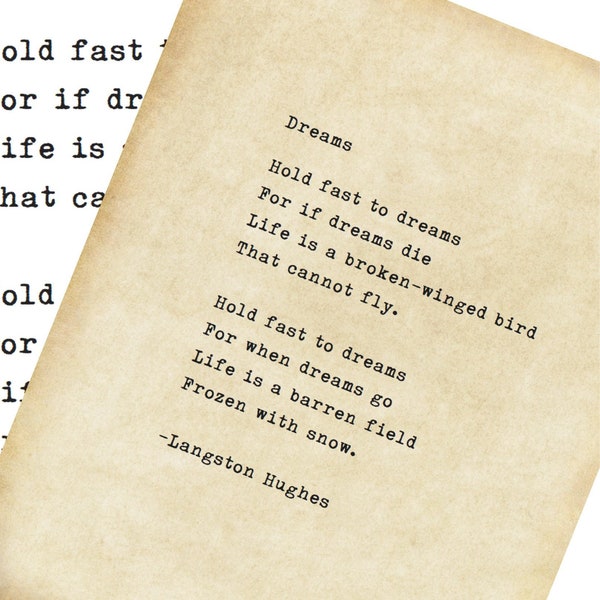 old fast
or if dr
ife is
hat ca
old
or
if
Dreams
Hold fast to dreams
For if dreams die
Life is a broken-winged bird
That cannot fly.
Hold fast to dreams
For when dreams go
Life is a barren field
Frozen with snow.
-Langston Hughes